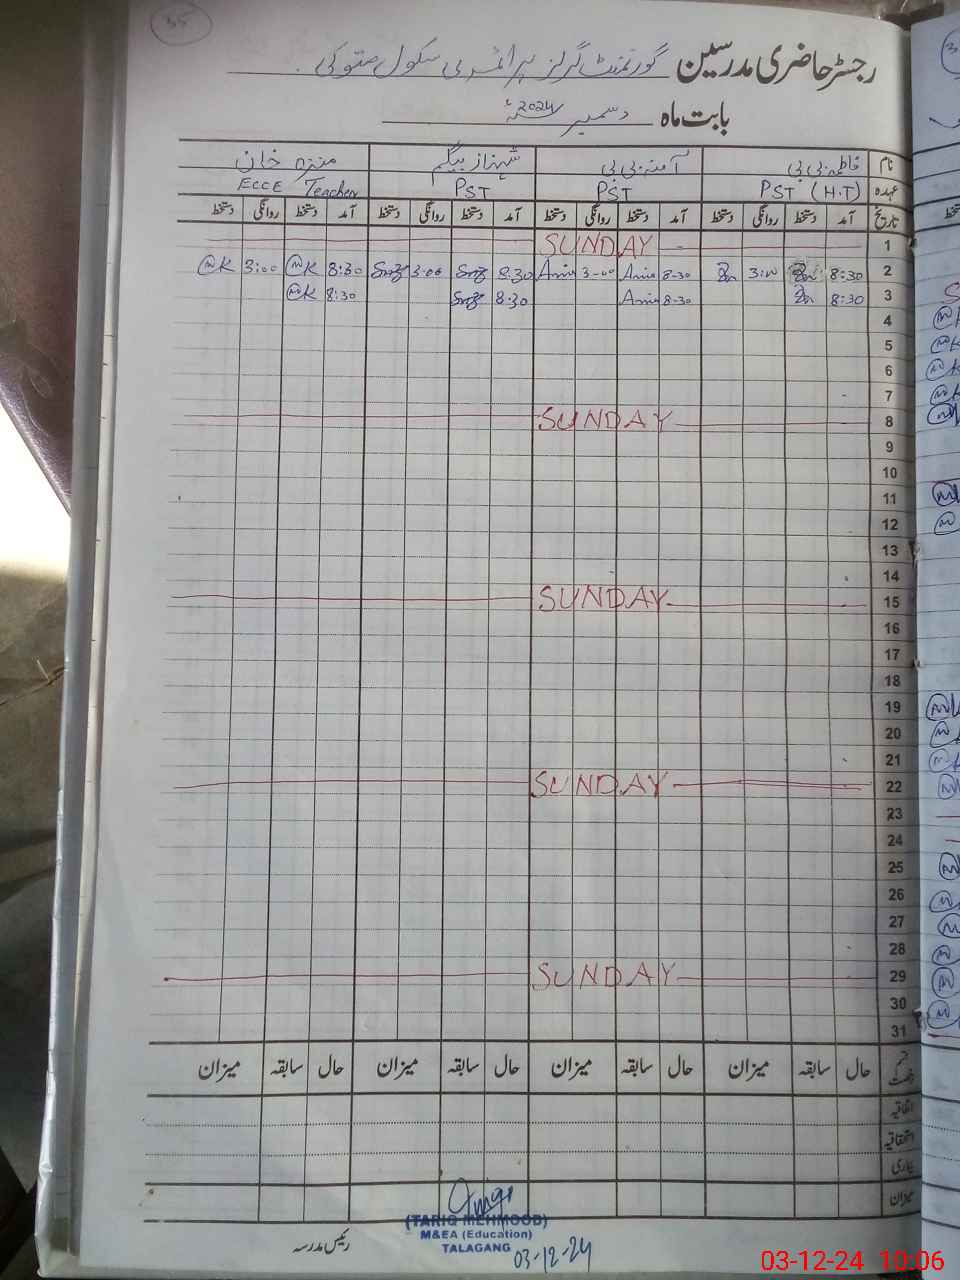 35
رجسٹر حاضری مدرسین گورنمنٹ گرلز پرائمری سکول
بابت ماہ دسمبر 2024ء
نام فاطمہ بی بی آمنہ بی بی شہناز بیگم منزہ خان
عہدہ PST (H.T) PST PST ECCE Teacher
تاریخ آمد دستخط روانگی دستخط آمد دستخط روانگی دستخط آمد دستخط روانگی دستخط آمد دستخط روانگی دستخط
1 SUNDAY
2 8:30 3:00 8-30 Amna 3-00 Amna 8.30 3.00 8:30 MK 3:00 MK
3 8:30 8-30 Amna 8.30 8:30 MK
4
5
6
7
8 SUNDAY
9
10
11
12
13
14
15 SUNDAY
16
17
18
19
20
21
22 SUNDAY
23
24
25
26
27
28
29 SUNDAY
30
31
قسم رخصت حال سابقہ میزان حال سابقہ میزان حال سابقہ میزان حال سابقہ میزان
اتفاقیہ
استحقاقیہ
بیماری
میزان
(TARIQ MEHMOOD)
M&EA (Education)
TALAGANG
03-12-24
رئیس مدرسہ
03-12-24 10:06